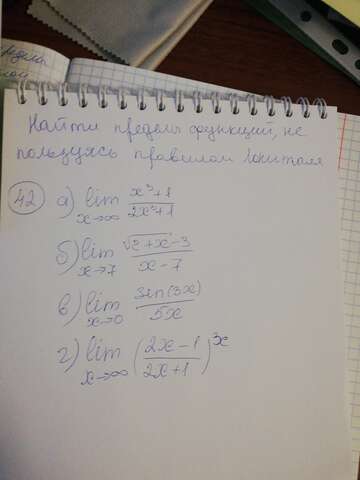 Найти пределы функций, не
пользуясь правилом Лопиталя
42 а) lim x→∞ (x³+1)/(2x³+1)
б) lim x→7 (√(2+x)-3)/(x-7)
в) lim x→0 sin(3x)/5x
г) lim x→∞ ((2x-1)/(2x+1))^3x